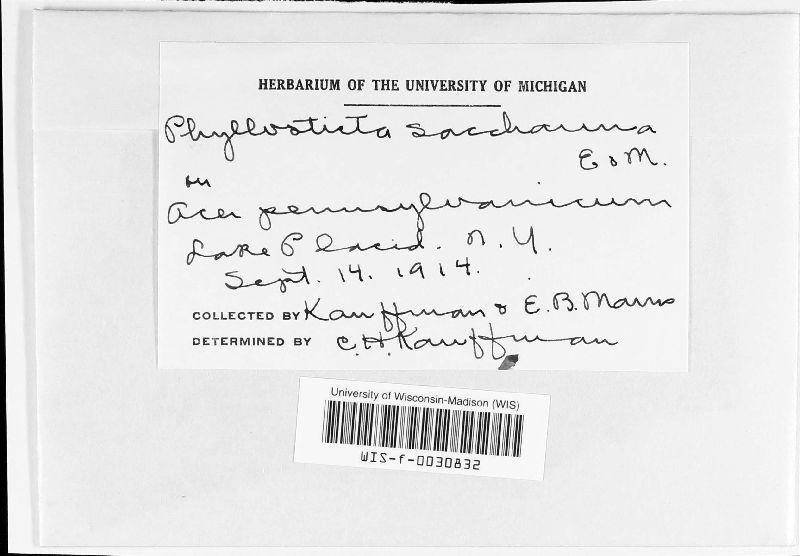 HERBARIUM OF THE UNIVERSITY OF MICHIGAN
Phyllosticta saccharina
E & M.
on
Acer pennsylvanicum
Lake Placid. N. Y.
Sept. 14. 1914.
COLLECTED BY Kauffman & E. B. Mains
DETERMINED BY C. H. Kauffman
University of Wisconsin-Madison (WIS)
WIS-f-0030832